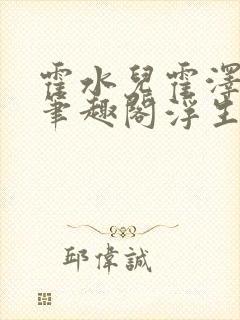 霍水兒霍澤
筆趣閣浮生
邱偉誠